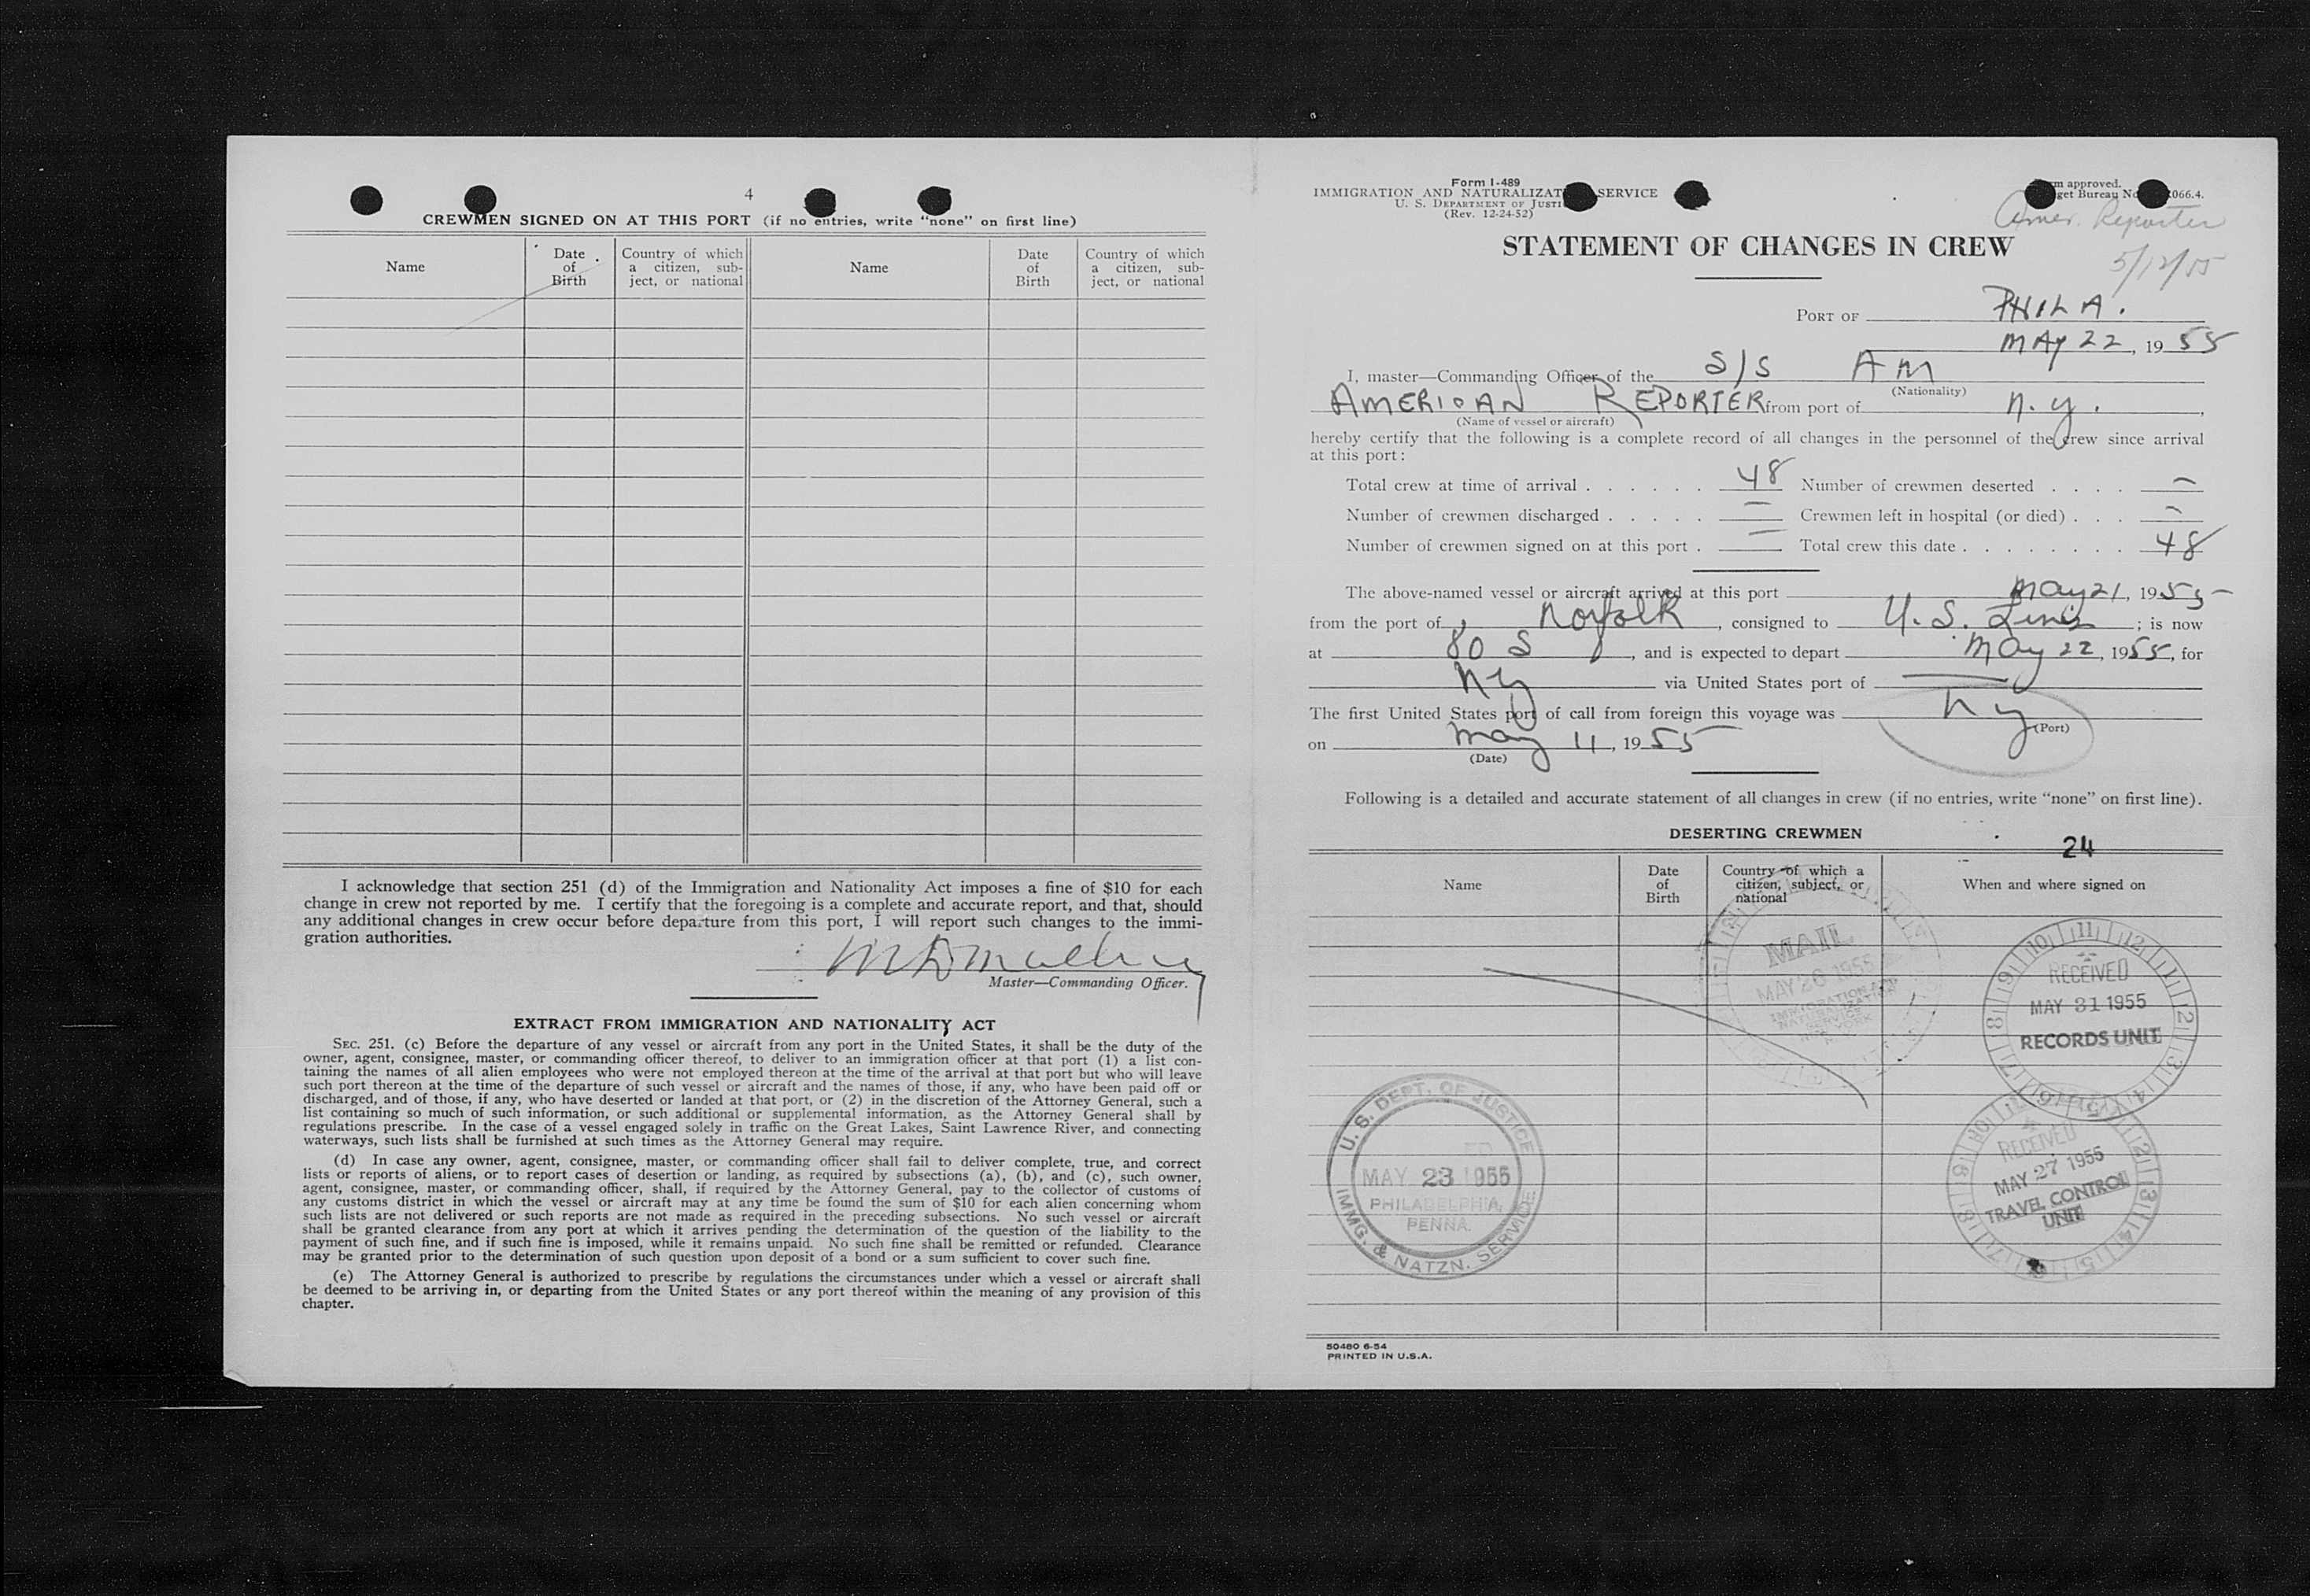 4
CREWMEN SIGNED ON AT THIS PORT (if no entries, write “none” on first line)
Name
Date of Birth
Country of which a citizen, subject, or national
Name
Date of Birth
Country of which a citizen, subject, or national
I acknowledge that section 251 (d) of the Immigration and Nationality Act imposes a fine of $10 for each
change in crew not reported by me. I certify that the foregoing is a complete and accurate report, and that, should
any additional changes in crew occur before departure from this port, I will report such changes to the immi-
gration authorities.
Master—Commanding Officer.
EXTRACT FROM IMMIGRATION AND NATIONALITY ACT
SEC. 251. (c) Before the departure of any vessel or aircraft from any port in the United States, it shall be the duty of the
owner, agent, consignee, master, or commanding officer thereof, to deliver to an immigration officer at that port (1) a list con-
taining the names of all alien employees who were not employed thereon at the time of the arrival at that port but who will leave
such port thereon at the time of the departure of such vessel or aircraft and the names of those, if any, who have been paid off or
discharged, and of those, if any, who have deserted or landed at that port, or (2) in the discretion of the Attorney General, such a
list containing so much of such information, or such additional or supplemental information, as the Attorney General shall by
regulations prescribe. In the case of a vessel engaged solely in traffic on the Great Lakes, Saint Lawrence River, and connecting
waterways, such lists shall be furnished at such times as the Attorney General may require.
(d) In case any owner, agent, consignee, master, or commanding officer shall fail to deliver complete, true, and correct
lists or reports of aliens, or to report cases of desertion or landing, as required by subsections (a), (b), and (c), such owner,
agent, consignee, master, or commanding officer, shall, if required by the Attorney General, pay to the collector of customs of
any customs district in which the vessel or aircraft may at any time be found the sum of $10 for each alien concerning whom
such lists are not delivered or such reports are not made as required in the preceding subsections. No such vessel or aircraft
shall be granted clearance from any port at which it arrives pending the determination of the question of the liability to the
payment of such fine, and if such fine is imposed, while it remains unpaid. No such fine shall be remitted or refunded. Clearance
may be granted prior to the determination of such question upon deposit of a bond or a sum sufficient to cover such fine.
(e) The Attorney General is authorized to prescribe by regulations the circumstances under which a vessel or aircraft shall
be deemed to be arriving in, or departing from the United States or any port thereof within the meaning of any provision of this
chapter.
Form I-489
IMMIGRATION AND NATURALIZAT SERVICE
U. S. DEPARTMENT OF JUSTI
(Rev. 12-24-52)
m approved.
get Bureau No 066.4.
Amer. Reporter
5/12/55
STATEMENT OF CHANGES IN CREW
PORT OF PHILA.
MAY 22, 1955
I, master—Commanding Officer of the S/S AM
(Nationality)
AMERICAN REPORTER from port of n.y.,
(Name of vessel or aircraft)
hereby certify that the following is a complete record of all changes in the personnel of the crew since arrival
at this port:
Total crew at time of arrival . . . . . . 48 Number of crewmen deserted . . . . —
Number of crewmen discharged . . . . . — Crewmen left in hospital (or died) . . . —
Number of crewmen signed on at this port . — Total crew this date . . . . . . . . 48
The above-named vessel or aircraft arrived at this port May 21, 1955
from the port of Norfolk, consigned to U.S. Lines; is now
at 80 S, and is expected to depart May 22, 1955, for
NY via United States port of —
The first United States port of call from foreign this voyage was NY
(Port)
on May 11, 1955
(Date)
Following is a detailed and accurate statement of all changes in crew (if no entries, write “none” on first line).
DESERTING CREWMEN
24
Name
Date of Birth
Country of which a citizen, subject, or national
When and where signed on
MAIL
MAY 26 1955
IMMIGRATION AND
NATURALIZATION
SERVICE
RECEIVED
MAY 31 1955
RECORDS UNIT
U. S. DEPT. OF JUSTICE
MAY 23 1955
PHILADELPHIA,
PENNA.
IMMG. & NATZN. SERVICE
RECEIVED
MAY 27 1955
TRAVEL CONTROL
UNIT
50480 6-54
PRINTED IN U.S.A.